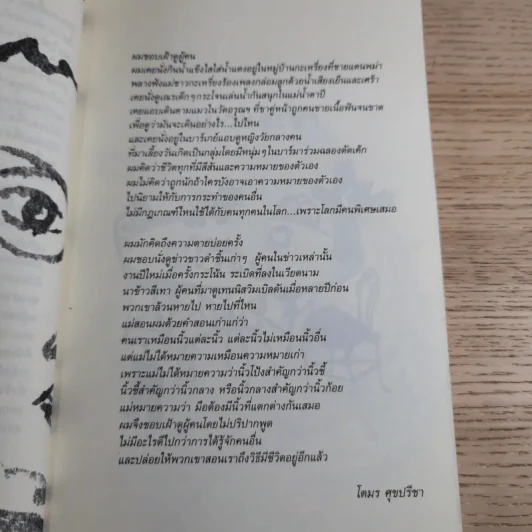 ผมชอบเฝ้าดูผู้คน
ผมเคยนั่งกินน้ำแข็งใสใส่น้ำแดงอยู่ในหมู่บ้านกะเหรี่ยงที่ชายแดนพม่า
พลางฟังแม่ชาวกะเหรี่ยงร้องเพลงกล่อมลูกด้วยน้ำเสียงเย็นและเศร้า
เคยนั่งดูเณรเด็กๆกระโจนเล่นน้ำกันสนุกในแม่น้ำตาปี
เคยแอบเดินตามแมวในวัดอรุณฯ ที่ขาคู่หน้าถูกคนชายเนื้อฟันจนขาด
เพื่อดูว่ามันจะเดินอย่างไร...ไปไหน
และเคยนั่งอยู่ในบาร์เกย์แอบดูหญิงวัยกลางคน
ที่มาเลี้ยงวันเกิดเป็นกลุ่มโดยมีหนุ่มๆในบาร์มาร่วมฉลองตัดเค้ก
ผมคิดว่าชีวิตทุกที่มีสีสันและความหมายของตัวเอง
ผมไม่คิดว่าถูกนักถ้าใครบังอาจเอาความหมายของตัวเอง
ไปนิยามให้กับการกระทำของคนอื่น
ไม่มีกฎเกณฑ์ไหนใช้ได้กับคนทุกคนในโลก...เพราะโลกมีคนพิเศษเสมอ
ผมมักคิดถึงความตายบ่อยครั้ง
ผมชอบนั่งดูข่าวขาวดำชิ้นเก่าๆ ผู้คนในข่าวเหล่านั้น
งานปีใหม่เมื่อครั้งกระโน้น ระเบิดที่ลงในเวียดนาม
นาข้าวสีเทา ผู้คนที่มาดูเทนนิสวิมเบิลดันเมื่อหลายปีก่อน
พวกเขาล้วนหายไป หายไปที่ไหน
แม่สอนผมด้วยคำสอนเก่าแก่ว่า
คนเราเหมือนนิ้วแต่ละนิ้ว แต่ละนิ้วไม่เหมือนนิ้วอื่น
แต่แม่ไม่ได้หมายความเหมือนความหมายเก่า
เพราะแม่ไม่ได้หมายความว่านิ้วโป้งสำคัญกว่านิ้วชี้
นิ้วชี้สำคัญกว่านิ้วกลาง หรือนิ้วกลางสำคัญกว่านิ้วก้อย
แม่หมายความว่า มือต้องมีนิ้วที่แตกต่างกันเสมอ
ผมจึงชอบเฝ้าดูผู้คนโดยไม่ปริปากพูด
ไม่มีอะไรดีไปกว่าการได้รู้จักคนอื่น
และปล่อยให้พวกเขาสอนเราถึงวิธีมีชีวิตอยู่อีกแล้ว
โตมร ศุขปรีชา